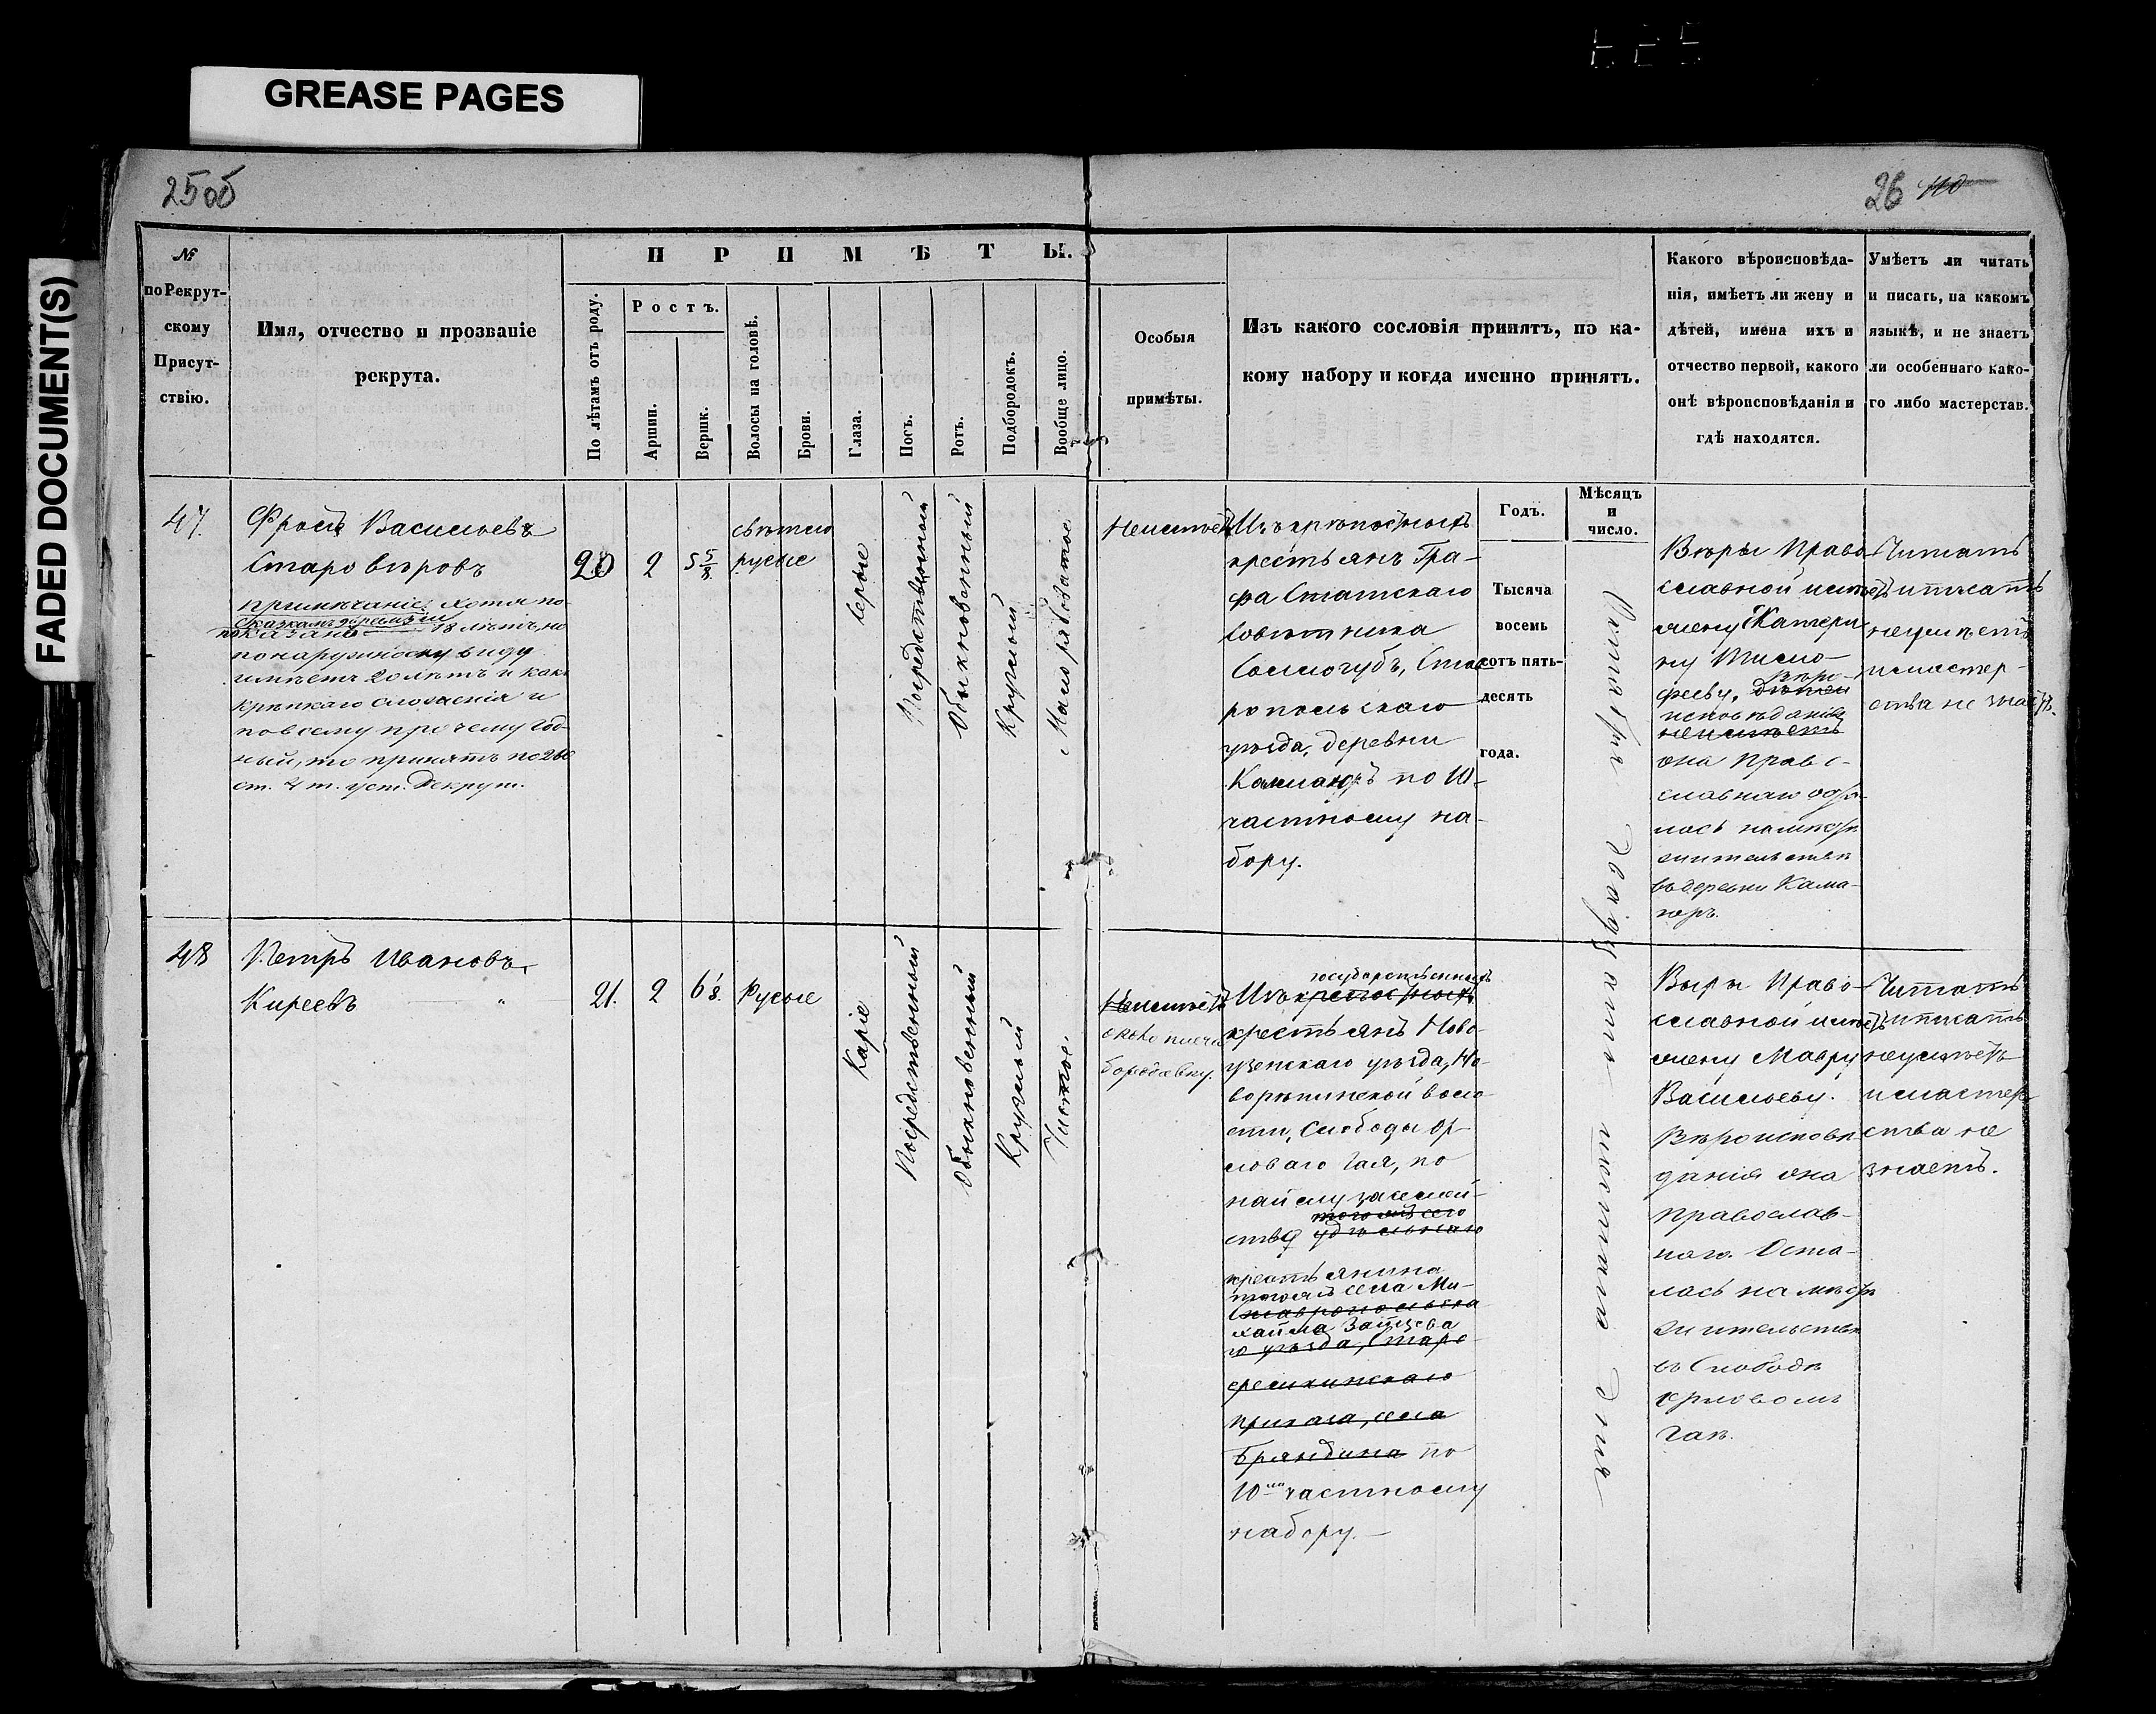 GREASE PAGES
FADED DOCUMENT(S)
25об
26 110
№
по Рекрут-
скому
Присут-
ствію.
Имя, отчество и прозваніе
рекрута.
ПРИМѢТЫ.
По лѣтамъ отъ роду.
Ростъ.
Аршин.
Вершк.
Волосы на головѣ.
Брови.
Глаза.
Носъ.
Ротъ.
Подбородокъ.
Вообще лицо.
Особыя
примѣты.
Изъ какого сословія принятъ, по ка-
кому набору и когда именно принятъ.
Какого вѣроисповѣда-
нія, имѣетъ ли жену и
дѣтей, имена ихъ и
отчество первой, какого
онѣ вѣроисповѣданія и
гдѣ находятся.
Умѣетъ ли читать
и писать, на какомъ
языкѣ, и не знаетъ
ли особеннаго како-
го либо мастерстав.
Годъ.
Мѣсяцъ
и
число.
Тысяча
восемь
сотъ пять-
десять
года.
47.
Фролъ Васильевъ
Старовѣровъ
примѣчаніе: хотя по
показано 18 лѣтъ, но
по наружному виду
имѣетъ 20 лѣтъ и какъ
крѣпкаго сложенія и
по всему прочему год-
ный, то принятъ по 286
ст. 4 т. уст. Рекрут.
20
2
5 5/8
свѣтло
русые
Серые
Посредственный
Обыкновенный
Круглый
Мало рябоватое
Неимѣетъ
Изъ крѣпостныхъ
крестьянъ Гра-
фа Статскаго
Совѣтника
Соллогубъ, Став-
ропольскаго
уѣзда, деревни
по 10-
частному на-
бору.
двадцать шестаго дня
Вѣры Право-
славной имѣетъ
жену Катери-
ну Тимо-
фееву, дѣтей
вѣро-
исповѣданія
неимѣетъ
она Право-
славнаго оста-
лась на мѣстѣ
жительства
въ деревни
Читать
и писать
неумѣетъ
и мастер-
ства не знаетъ.
48
Петръ Ивановъ
Киреевъ
21.
2
6 1/8.
Русые
Каріе
Посредственный
Обыкновенный
Круглый
Чистое.
Неимѣетъ
около плеча
бородавку.
государственныхъ
Изъ крепостныхъ
крестьянъ Ново-
узенскаго уѣзда, Но-
ворѣпинской воло-
сти, Слободы Ор-
ловаго Гая, по
найму за семей-
того же села
ства удѣльнаго
крестьянина
того же села Ми-
Ставропольска
хайла Зайцева
го уѣзда, Старо
приказа, села
Бряндина по
10ому частному
набору.
Вѣры Право-
славной имѣетъ
жену Мавру
Васильеву.
Вѣроисповѣ-
данія она
православ-
наго. Оста-
лась на мѣстѣ
жительства
въ Слободѣ
Орловомъ
Гаѣ.
Читать
и писать
неумѣетъ
и мастер-
ства не
знаетъ.